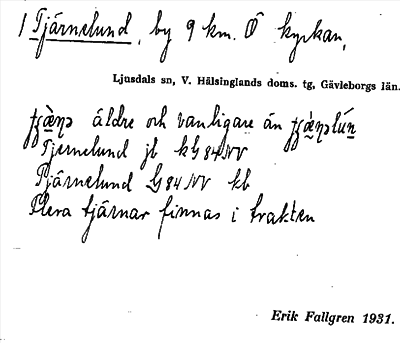 1 Tjärnelund, by 9 km. Ö kyrkan,
Ljusdals sn, V. Hälsinglands doms. tg, Gävleborgs län.
äldre och vanligare än
Tjernelund jb kG84NV
Tjärnelund G84NV kb
Flera tjärnar finnas i trakten
Erik Fallgren 1931.